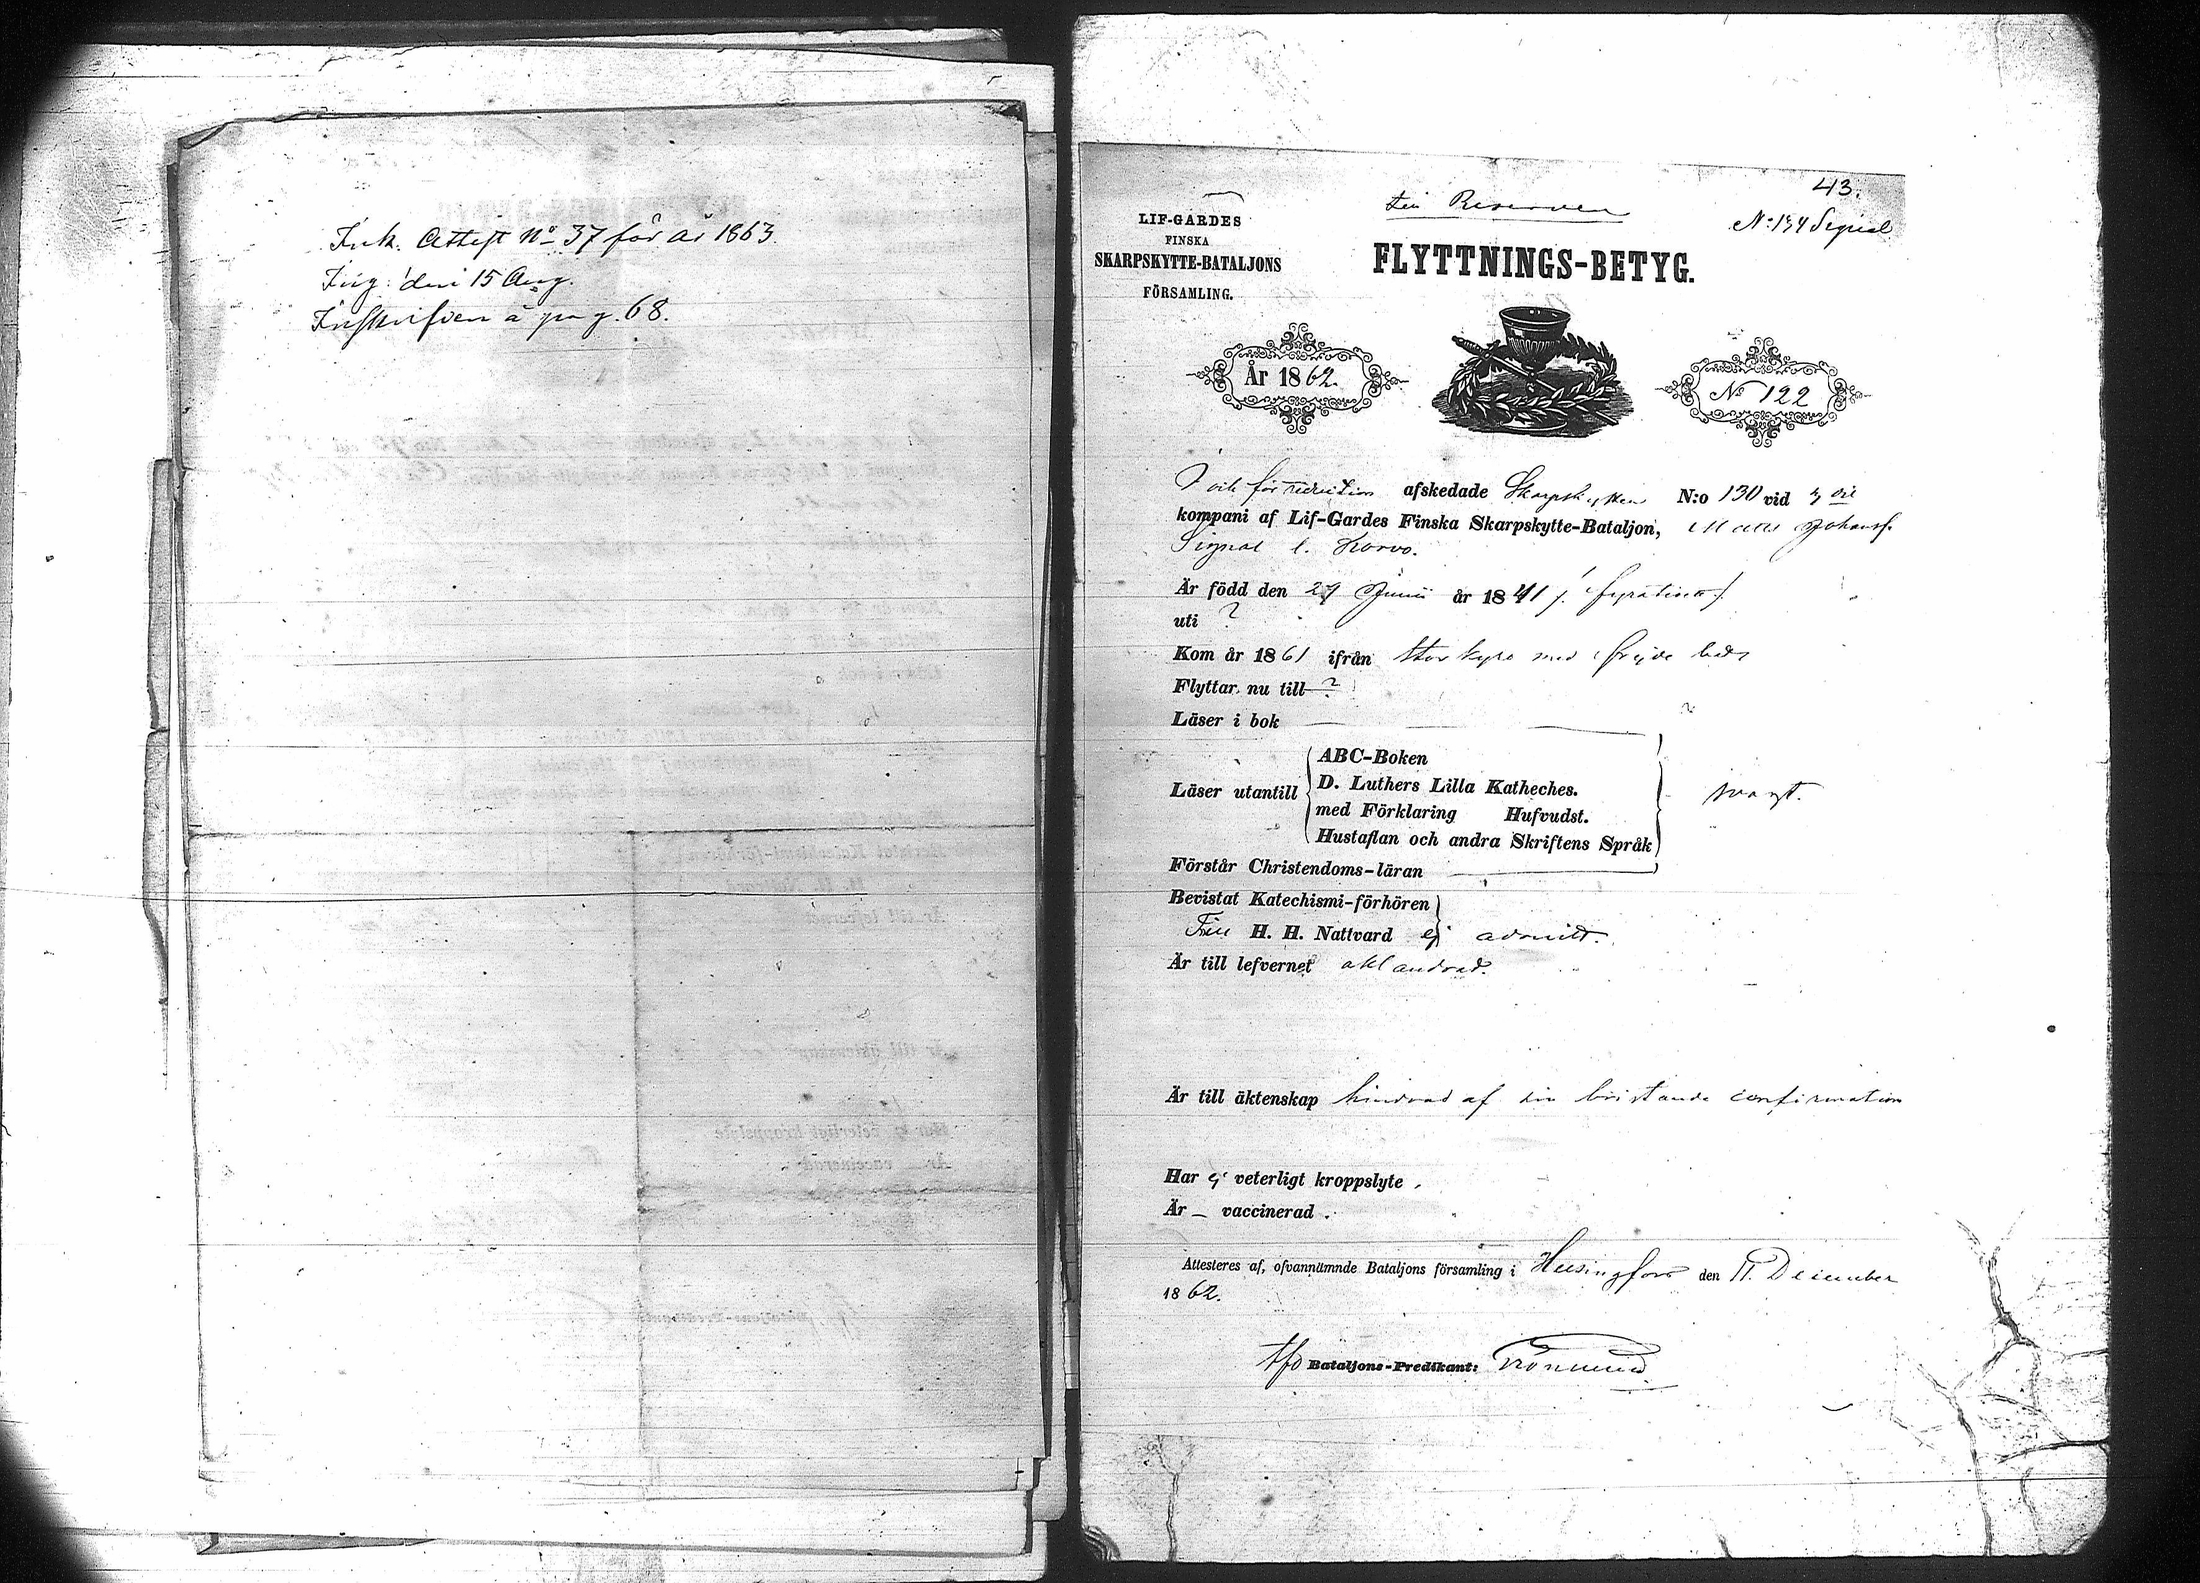 Ink. Attest No 37 för år 1863.
Ing: den 15 Aug.
Inskrifven å pag. 68.
43.
till Reserven
No: 134 Signal
LIF-GARDES
FINSKA
SKARPSKYTTE-BATALJONS
FÖRSAMLING.
FLYTTNINGS-BETYG.
År 1862.
No 122
för reduction afskedade Skarpskytten N:o 130 vid
kompani af Lif-Gardes Finska Skarpskytte-Bataljon, Matts Johansf.
Signal l. Korvo.
Är född den 27 Junii år 1841
uti ?
Kom år 1861 ifrån Storkyro med frejde
Flyttar nu till ?
Läser i bok
Läser utantill
ABC-Boken
D. Luthers Lilla Katheches.
med Förklaring Hufvudst.
Hustaflan och andra Skriftens Språk
svagt.
Förstår Christendoms-läran
Bevistat Katechismi-förhören
Till H. H. Nattvard ej admitt.
Är till lefvernet oklandrad.
Är till äktenskap hindrad af sin bristande confirmation
Har ej veterligt kroppslyte.
Är – vaccinerad.
Attesteres af, ofvannämnde Bataljons församling i Helsingfors den 11. December
1862.
Bataljons-Predikant: